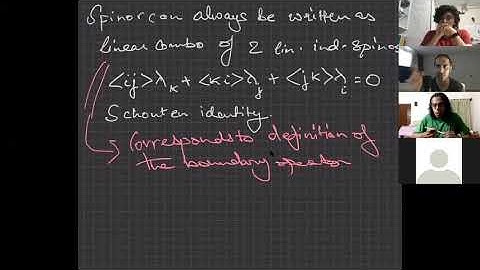 Spinor can always be written as
linear combo of 2 lin. ind. spinos
<ij>λₖ + <ki>λⱼ + <jk>λᵢ = 0
Schouten identity.
Corresponds to definition of
the boundary operator